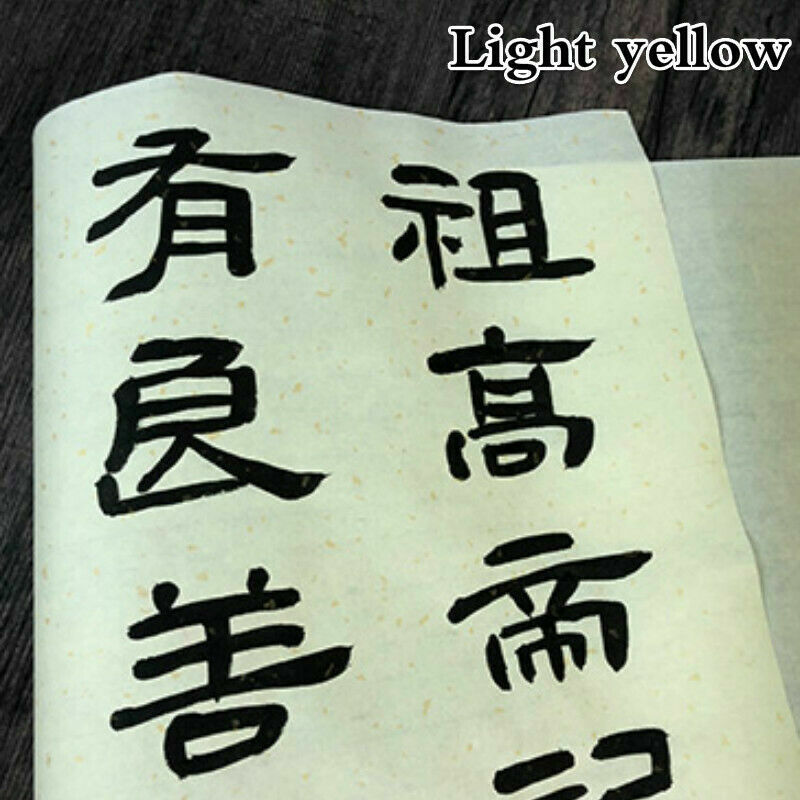 Light yellow
祖高帝
有良善